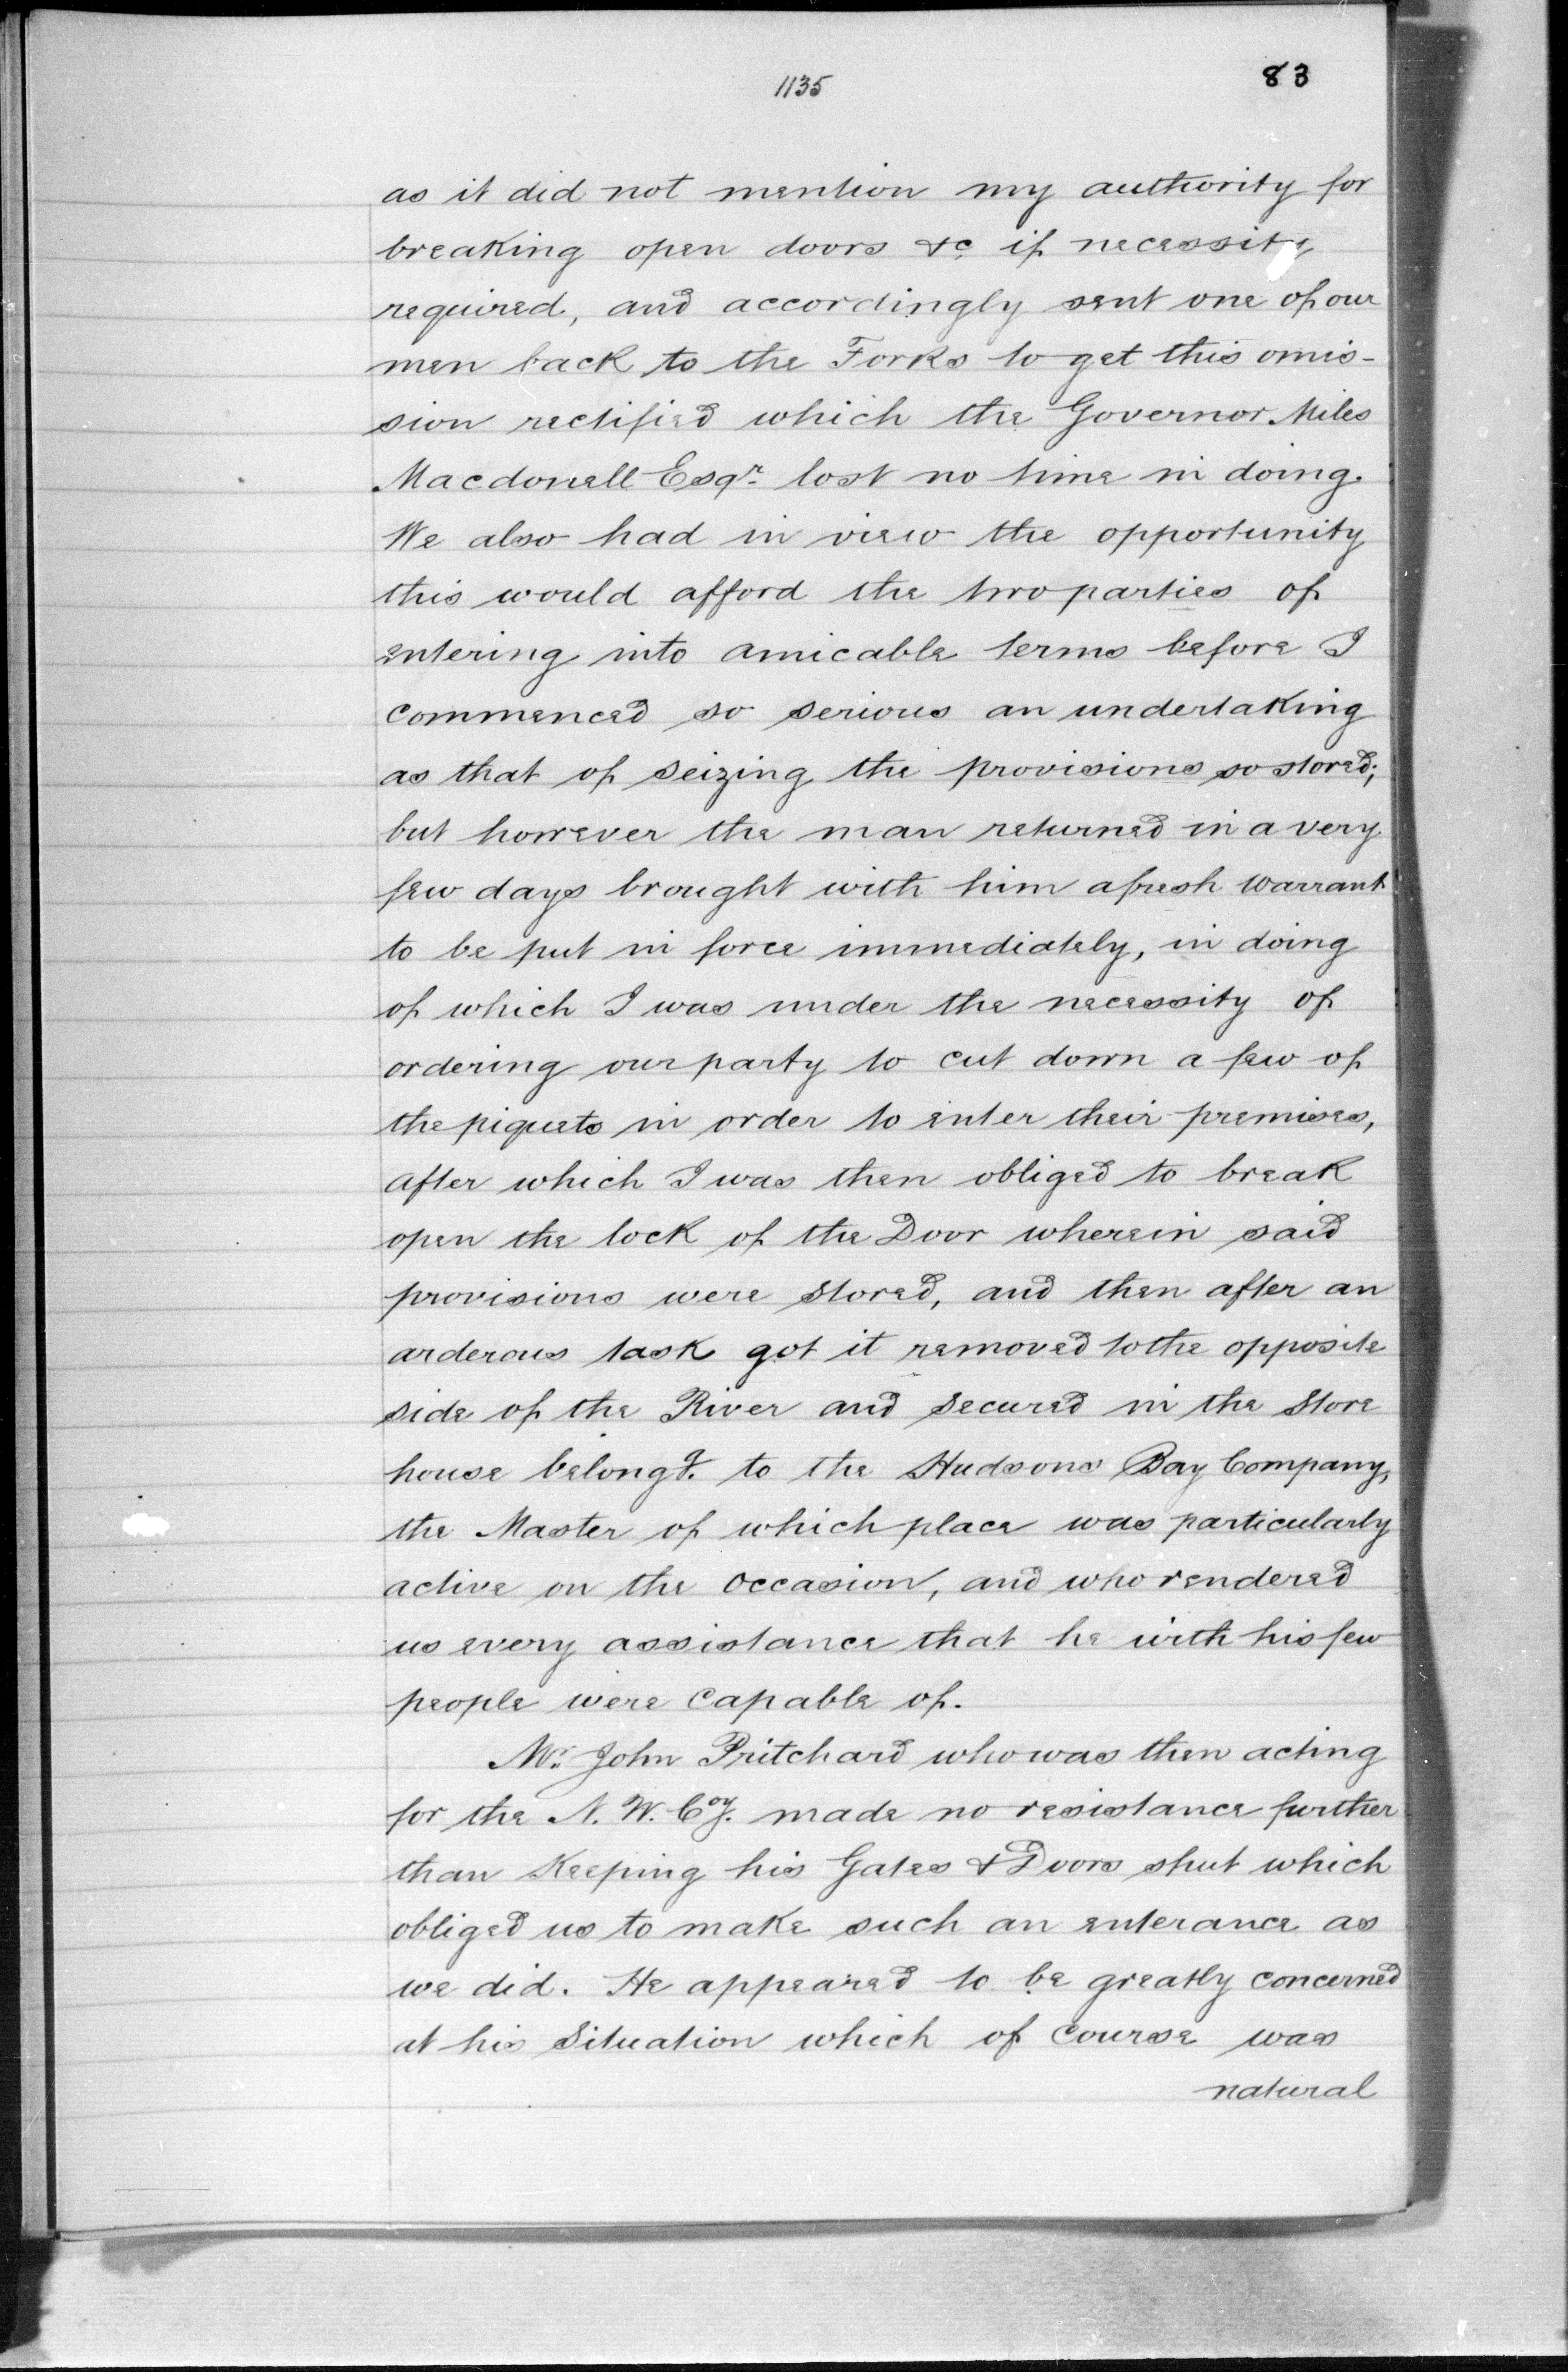 1135
83
as it did not mention my authority for
breaking open doors &c if necessity
required, and accordingly sent one of our
men back to the Forks to get this omis-
sion rectified which the Governor Miles
Macdonell Esqr. lost no time in doing.
We also had in view the opportunity
this would afford the two parties of
entering into amicable terms before I
commenced so serious an undertaking
as that of seizing the provisions so stored;
but however the man returned in a very
few days brought with him a fresh warrant
to be put in force immediately, in doing
of which I was under the necessity of
ordering our party to cut down a few of
the piquets in order to enter their premises,
after which I was then obliged to break
open the lock of the Door wherein said
provisions were stored, and then after an
arderous task got it removed to the opposite
side of the River and secured in the Store
house belongg. to the Hudsons Bay Company,
the Master of which place was particularly
active on the occasion, and who rendered
us every assistance that he with his few
people were capable of.
Mr. John Pritchard who was then acting
for the N. W. Coy. made no resistance further
than Keeping his Gates & Doors shut which
obliged us to make such an enterance as
we did. He appeared to be greatly concerned
at his Situation which of course was
natural